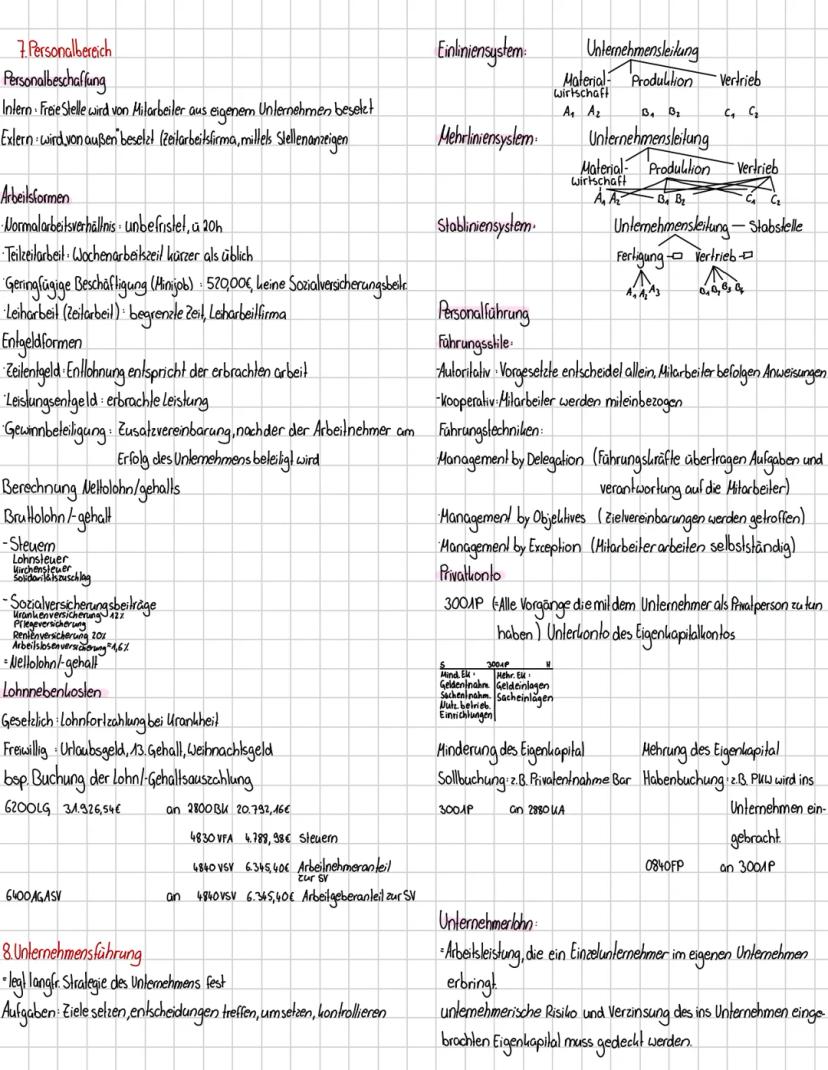 7. Personalbereich
Personalbeschaffung
Intern: Freie Stelle wird von Mitarbeiter aus eigenem Unternehmen besetzt
Extern: wird „von außen" besetzt (Zeitarbeitsfirma, mittels Stellenanzeigen
Arbeitsformen
·Normalarbeitsverhältnis: unbefristet, ü 20h
·Teilzeitarbeit: Wochenarbeitszeit kürzer als üblich
·Geringfügige Beschäftigung (Minijob): 520,00€, keine Sozialversicherungsbeitr.
·Leiharbeit (Zeitarbeit): begrenzte Zeit, Leiharbeitfirma
Entgeldformen
·Zeitentgeld: Entlohnung entspricht der erbrachten arbeit
·Leistungsentgeld: erbrachte Leistung
·Gewinnbeteiligung: Zusatzvereinbarung, nach der der Arbeitnehmer am
Erfolg des Unternehmens beteiligt wird
Berechnung Nettolohn/gehalts
Bruttolohn/-gehalt
- Steuern
Lohnsteuer
Kirchensteuer
Solidaritätszuschlag
- Sozialversicherungsbeiträge
Krankenversicherung 12%
Pflegeversicherung
Rentenversicherung 20%
Arbeitslosenversicherung 1,6%
= Nettolohn/-gehalt
Lohnnebenkosten
Gesetzlich: Lohnfortzahlung bei Krankheit
Freiwillig: Urlaubsgeld, 13. Gehalt, Weihnachtsgeld
bsp. Buchung der Lohn/-Gehaltsauszahlung
6200LG 31.926,54€ an 2800BK 20.792,16€
4830 VFA 4.788,98€ Steuern
4840 VSV 6.345,40€ Arbeitnehmeranteil
zur SV
6400AGASV an 4840VSV 6.345,40€ Arbeitgeberanteil zur SV
8. Unternehmensführung
= legt langfr. Strategie des Unternehmens fest
Aufgaben: Ziele setzen, entscheidungen treffen, umsetzen, kontrollieren
Einliniensystem: Unternehmensleitung
Material- Produktion Vertrieb
wirtschaft
A1 A2 B1 B2 C1 C2
Mehrliniensystem: Unternehmensleitung
Material- Produktion Vertrieb
wirtschaft
A1 A2 B1 B2 C1 C2
Stabliniensystem: Unternehmensleitung — Stabstelle
Fertigung Vertrieb
A1 A2 A3 B1 B2 B3 B4
Personalführung
Führungsstile:
-Autoritativ: Vorgesetzte entscheidet allein, Mitarbeiter befolgen Anweisungen
-Kooperativ: Mitarbeiter werden miteinbezogen
Führungstechniken:
·Management by Delegation (Führungskräfte übertragen Aufgaben und
verantwortung auf die Mitarbeiter)
·Management by Objektives (Zielvereinbarungen werden getroffen)
·Management by Exception (Mitarbeiter arbeiten selbstständig)
Privatkonto
3001P (=Alle Vorgänge die mit dem Unternehmer als Privatperson zu tun
haben) Unterkonto des Eigenkapitalkontos
S 3001P H
Mind. EK: Mehr. EK:
Geldentnahm. Geldeinlagen
Sachentnahm. Sacheinlagen
Nutz. betrieb.
Einrichtungen
Minderung des Eigenkapital Mehrung des Eigenkapital
Sollbuchung: z.B. Privatentnahme Bar Habenbuchung: z.B. PKW wird ins
3001P an 2880 KA Unternehmen ein-
gebracht.
0840FP an 3001P
Unternehmerlohn:
= Arbeitsleistung, die ein Einzelunternehmer im eigenen Unternehmen
erbringt.
unternehmerische Risiko und Verzinsung des ins Unternehmen einge-
brachten Eigenkapital muss gedeckt werden.